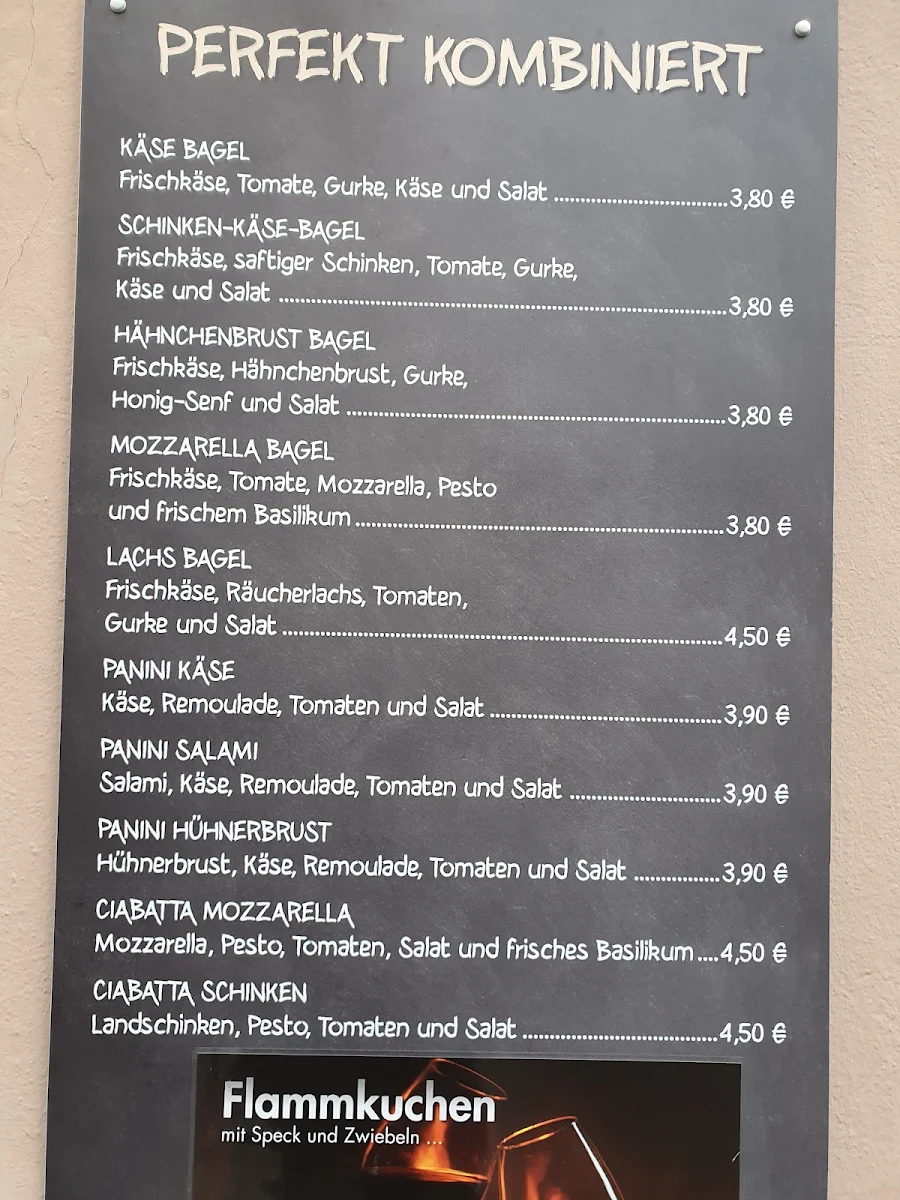 PERFEKT KOMBINIERT
KÄSE BAGEL
Frischkäse, Tomate, Gurke, Käse und Salat ............................3,80 €
SCHINKEN-KÄSE-BAGEL
Frischkäse, saftiger Schinken, Tomate, Gurke,
Käse und Salat ............................3,80 €
HÄHNCHENBRUST BAGEL
Frischkäse, Hähnchenbrust, Gurke,
Honig-Senf und Salat ............................3,80 €
MOZZARELLA BAGEL
Frischkäse, Tomate, Mozzarella, Pesto
und frischem Basilikum ............................3,80 €
LACHS BAGEL
Frischkäse, Räucherlachs, Tomaten,
Gurke und Salat ............................4,50 €
PANINI KÄSE
Käse, Remoulade, Tomaten und Salat ............................3,90 €
PANINI SALAMI
Salami, Käse, Remoulade, Tomaten und Salat ............................3,90 €
PANINI HÜHNERBRUST
Hühnerbrust, Käse, Remoulade, Tomaten und Salat ................3,90 €
CIABATTA MOZZARELLA
Mozzarella, Pesto, Tomaten, Salat und frisches Basilikum....4,50 €
CIABATTA SCHINKEN
Landschinken, Pesto, Tomaten und Salat ............................4,50 €
Flammkuchen
mit Speck und Zwiebeln ...